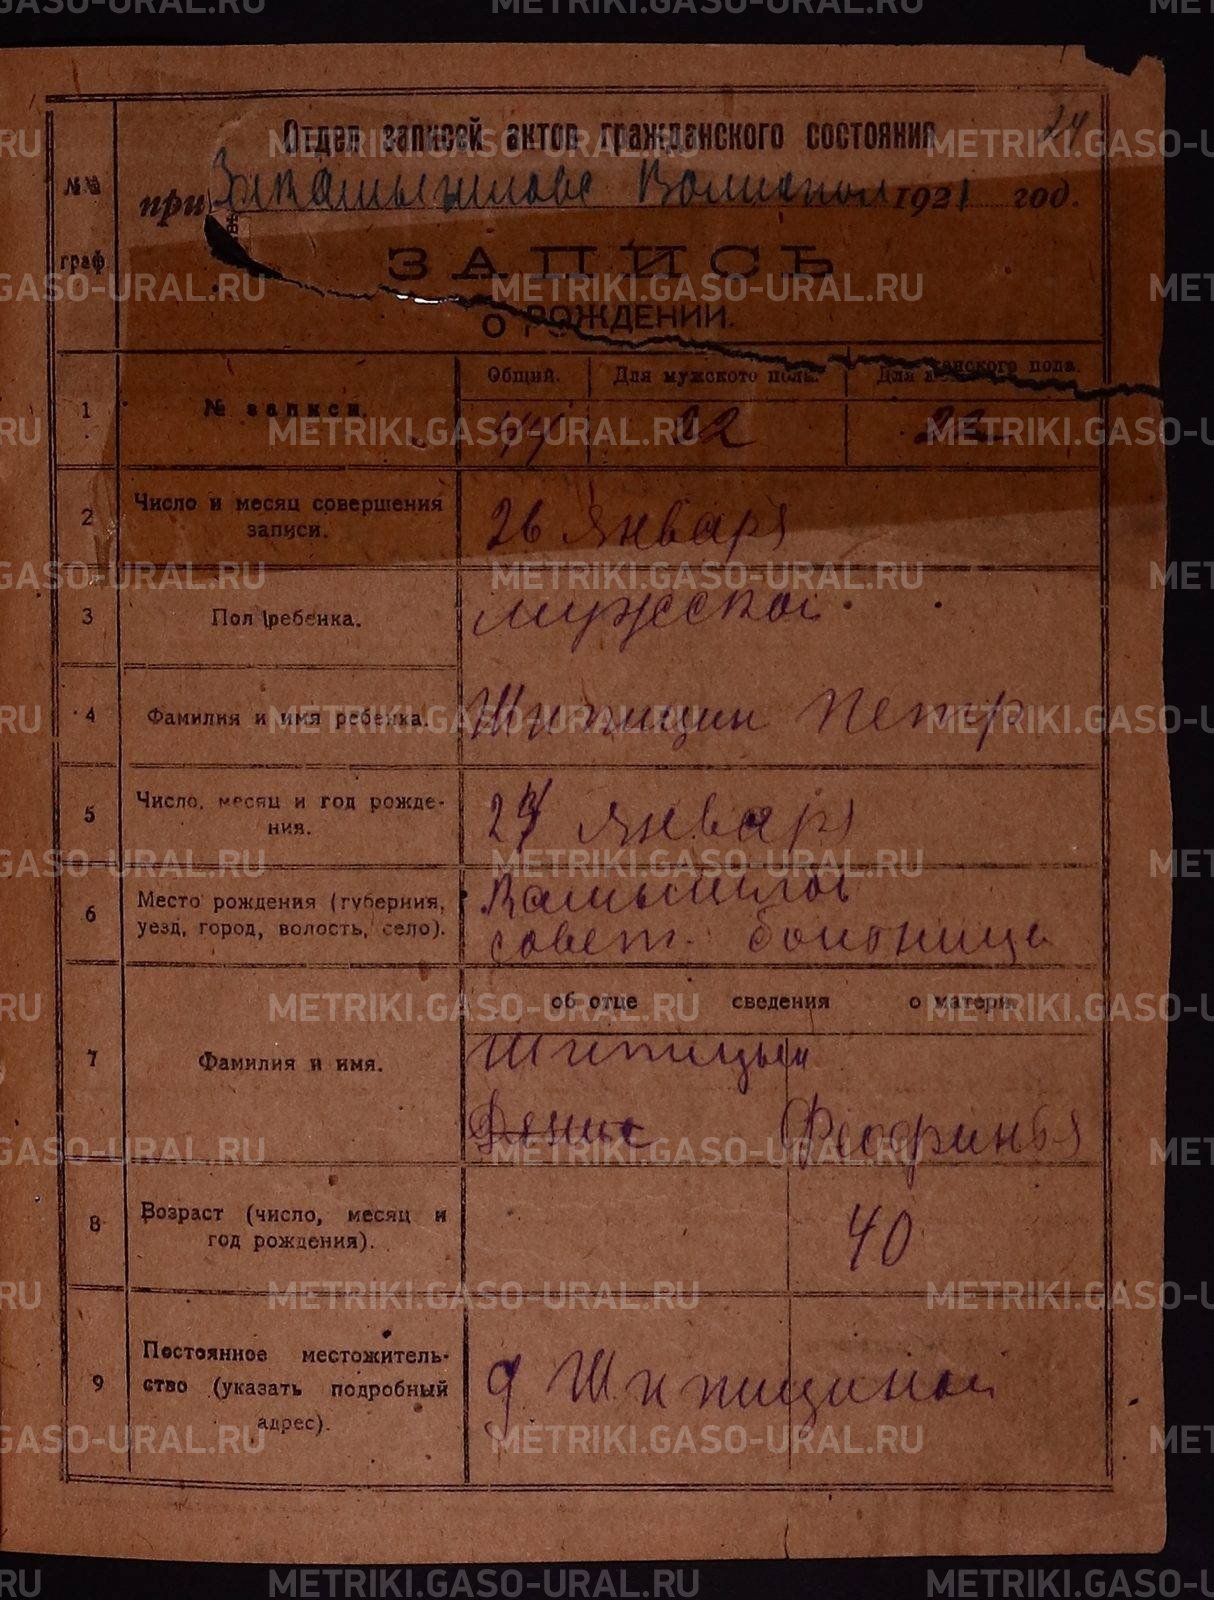 24
Отдел записей актов гражданского состояния
при Закамышловс Волиспол 1921 год.
№№ граф.
ЗАПИСЬ
О РОЖДЕНИИ.
Общий. Для мужского пола. Для женского пола.
1 № записи. 44 22 22
2 Число и месяц совершения
записи.
26 января
3 Пол ребенка. мужской
4 Фамилия и имя ребенка. Шипицин Петр
5 Число, месяц и год рожде-
ния.
24 января
6 Место рождения (губерния,
уезд, город, волость, село).
Камышлов
совет. больница
об отце сведения о матери.
7 Фамилия и имя.
Шипицын
Денис Феофинья
8 Возраст (число, месяц и
год рождения).
40
9 Постоянное местожитель-
ство (указать подробный
адрес).
д Шипициной
METRIKI.GASO-URAL.RU